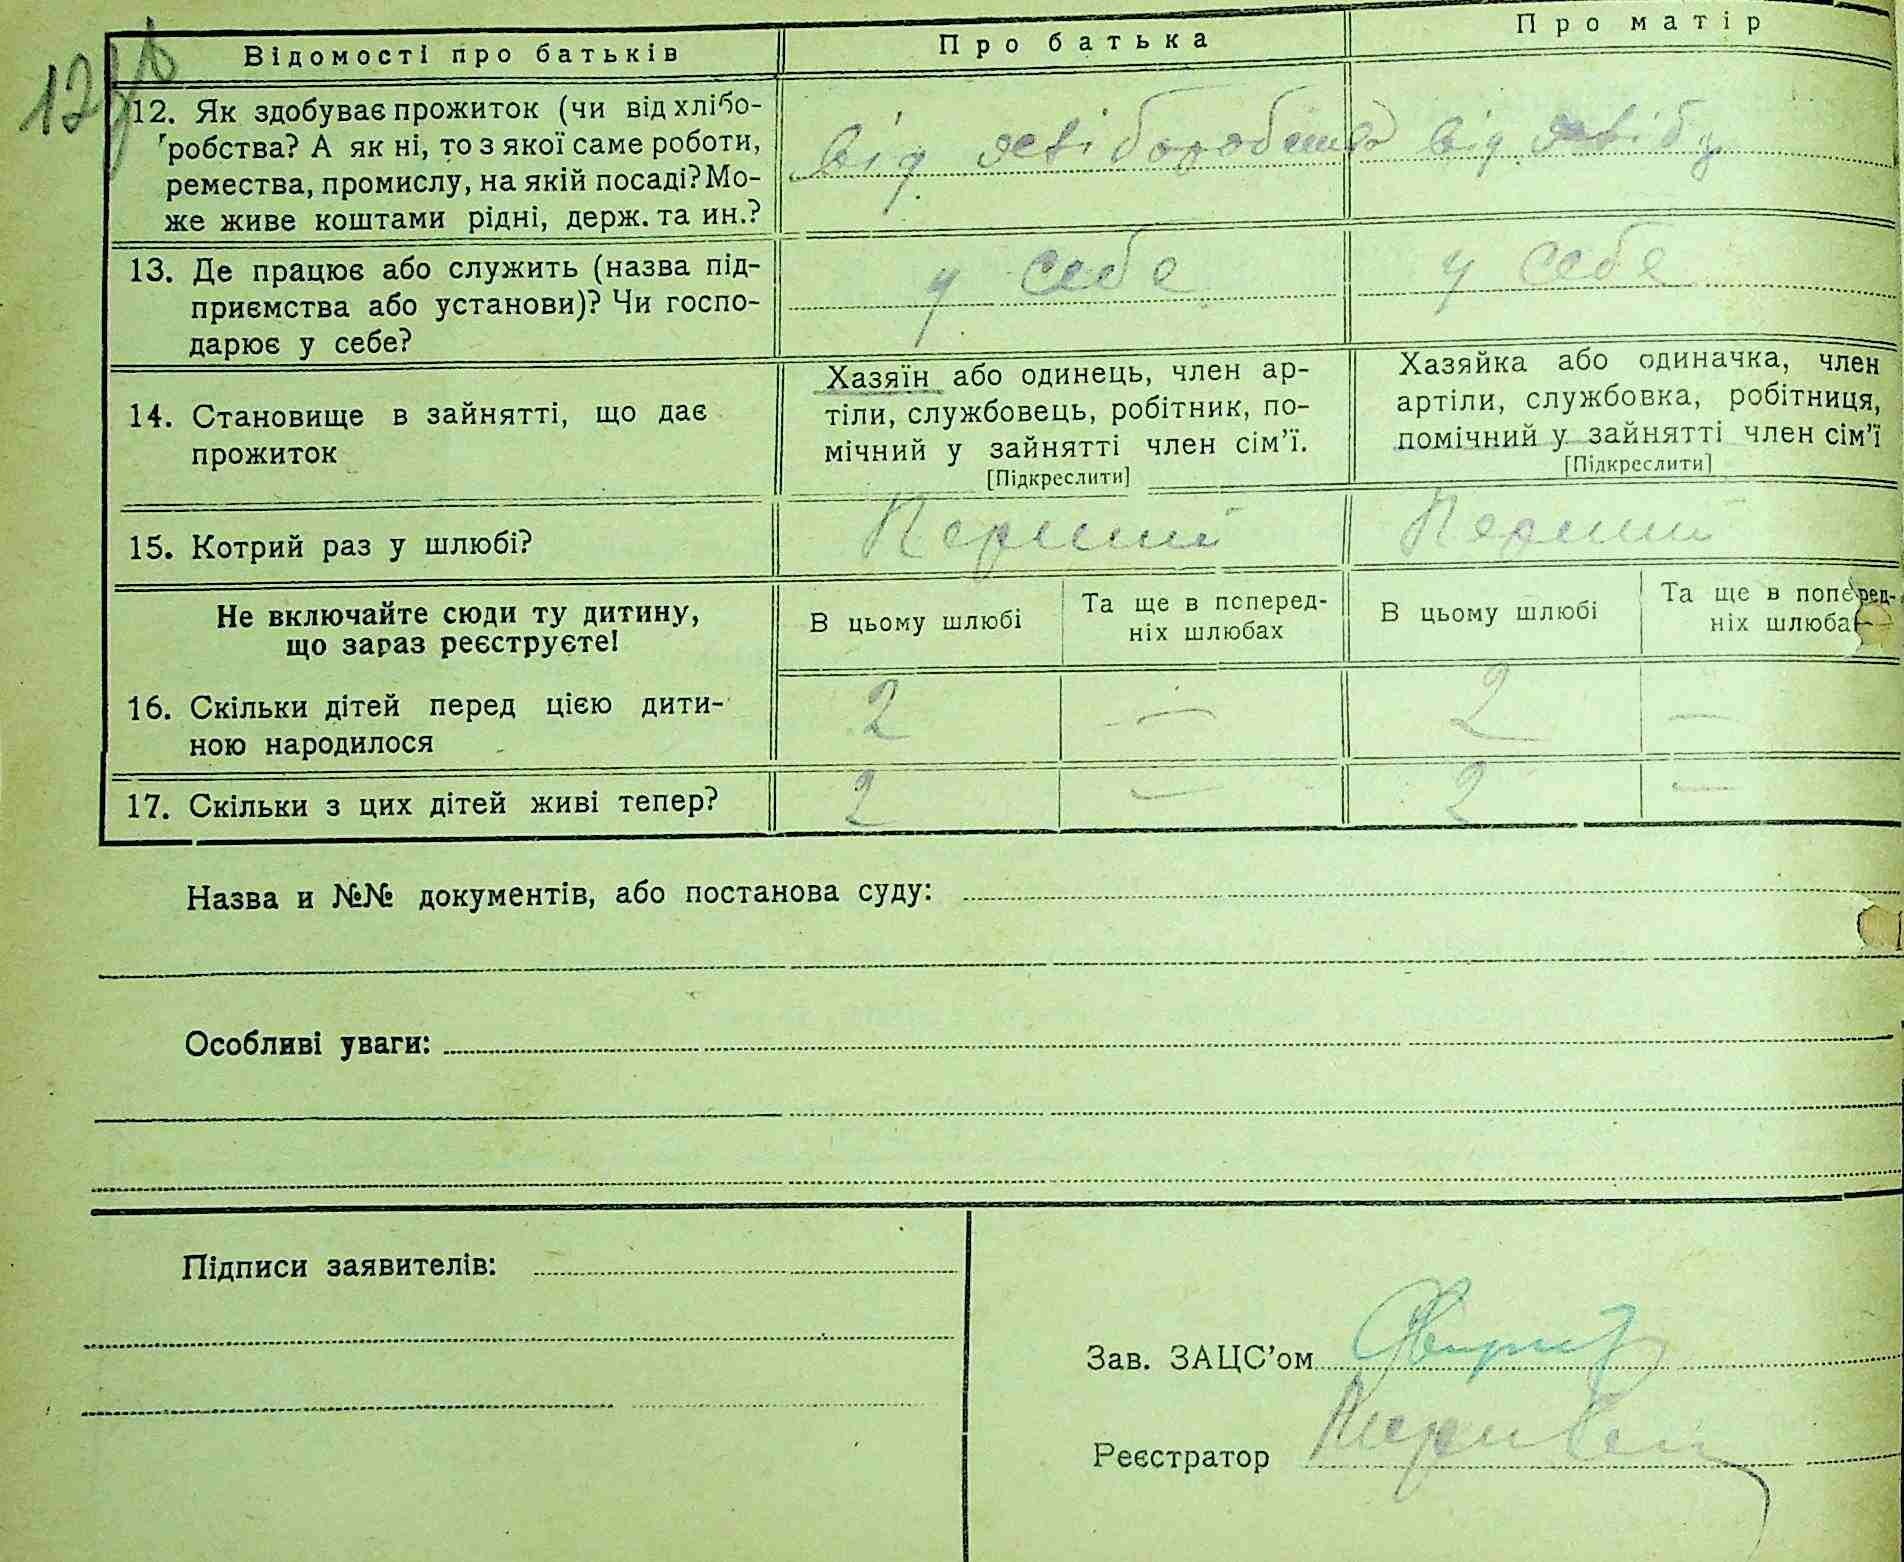 Відомості про батьків
Про батька
Про матір
12. Як здобуває прожиток (чи від хлібо-
робства? А як ні, то з якої саме роботи,
ремества, промислу, на якій посаді? Мо-
же живе коштами рідні, держ. та ин.?
від хліборобства
від хлібр
13. Де працює або служить (назва під-
приємства або установи)? Чи госпо-
дарює у себе?
у себе
у себе
14. Становище в зайнятті, що дає
прожиток
Хазяїн або одинець, член ар-
тіли, службовець, робітник, по-
мічний у зайнятті член сім’ї.
[Підкреслити]
Хазяйка або одиначка, член
артіли, службовка, робітниця,
помічний у зайнятті член сім’ї
[Підкреслити]
15. Котрий раз у шлюбі?
Перший
Перший
Не включайте сюди ту дитину,
що зараз реєструєте!
В цьому шлюбі
Та ще в поперед-
ніх шлюбах
В цьому шлюбі
Та ще в поперед-
ніх шлюбах
16. Скільки дітей перед цією дити-
ною народилося
2 — 2 —
17. Скільки з цих дітей живі тепер?
2 — 2 —
Назва и №№ документів, або постанова суду:
Особливі уваги:
Підписи заявителів:
Зав. ЗАЦС’ом
Реєстратор